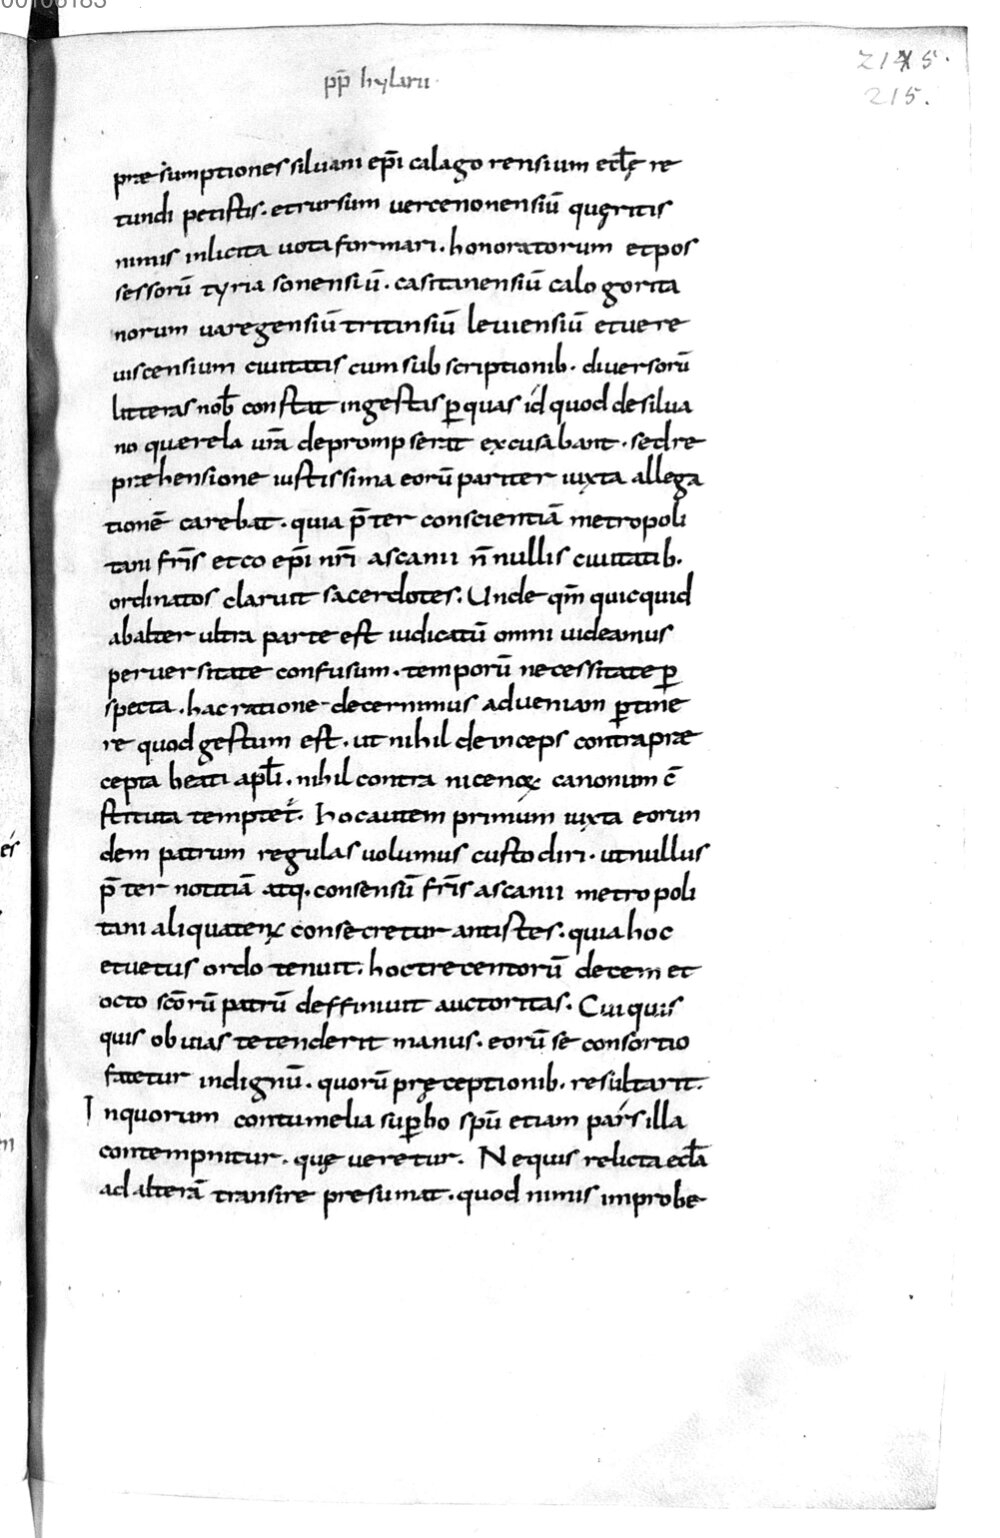 00106183
pp̄ hylarii·
2145.
215.
præsumptiones silvani ep̄i calagorensium eccl̄ę re
tundi petistis. et rursum vercenonensiū quęritis
nimis inlicita vota formari. honoratorum et pos
sessorū tyriasonensiū. casitanensiū calogorita
norum varegensiū tritinsiū leviensiū et vere
viscensium civitatis cum subscriptionib. diversorū
litteras nob̄ constat ingestis ꝑ quas id quod de silva
no querela vr̄a deprompserat excusabant. sed re
præhensione iustissima eorū pariter iuxta allega
tionē carebat. quia p̄ter conscientiā metropoli
tani fr̄is et coep̄i nr̄i ascanii n̄nullis civitatib.
ordinatos claruit sacerdotes. Unde qm̄ quicquid
ab alter ultra parte est iudicatū omni videamus
perversitate confusum. temporū necessitate ꝑ
specta. hac ratione decernimus ad veniam ꝑtine
re quod gestum est. ut nihil deinceps contra præ
cepta beati apl̄i. nihil contra nicenoꝝ canonum c̄
stituta temptet. hoc autem primum iuxta eorun
dem patrum regulas volumus custodiri. ut nullus
p̄ter notitiā atq. consensū fr̄is ascanii metropoli
tani aliquatenꝰ consecretur antistes. quia hoc
et vetus ordo tenuit. hoc trecentorū decem et
octo sc̄orū patrū deffinivit auctoritas. Cui quis
quis obvias tetenderit manus. eorū se consortio
fatetur indignū. quorū pręceptionib. resultarit.
In quorum contumelia suꝑbo spū etiam pars illa
contempnitur. quę veretur. Ne quis relicta eccl̄a
ad alterā transire presumat. quod nimis improbe